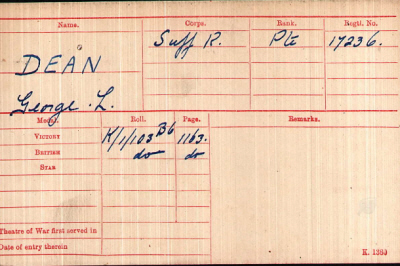 Name. Corps. Rank. Regtl. No.
DEAN Suff R. Pte 17236.
George. L.
Medal. Roll. Page. Remarks.
VICTORY K/1/103 B6 1163.
BRITISH do do
STAR
Theatre of War first served in
Date of entry therein
K. 1380